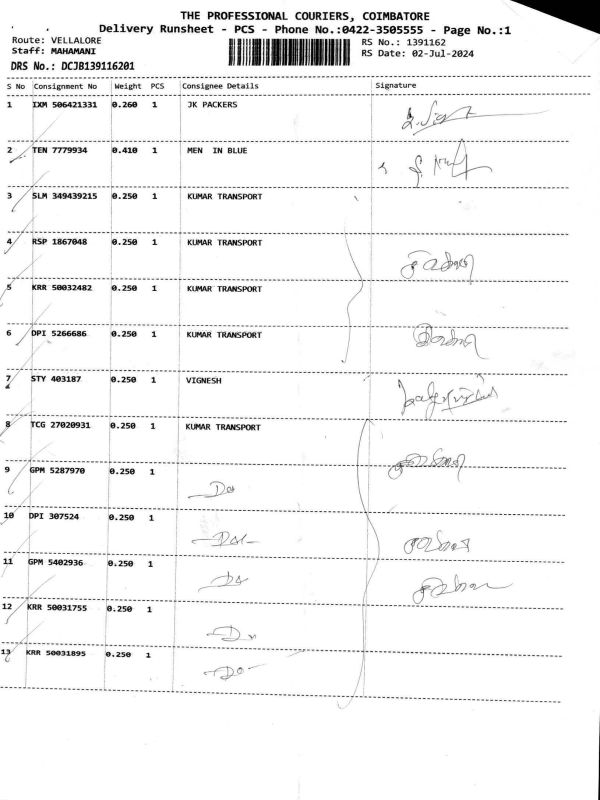 THE PROFESSIONAL COURIERS, COIMBATORE
Delivery Runsheet - PCS - Phone No.:0422-3505555 - Page No.:1
Route: VELLALORE RS No.: 1391162
Staff: MAHAMANI RS Date: 02-Jul-2024
DRS No.: DCJB139116201
S No Consignment No Weight PCS Consignee Details Signature
1 IXM 506421331 0.260 1 JK PACKERS
2 TEN 7779934 0.410 1 MEN IN BLUE
3 SLM 349439215 0.250 1 KUMAR TRANSPORT
4 RSP 1867048 0.250 1 KUMAR TRANSPORT
5 KRR 50032482 0.250 1 KUMAR TRANSPORT
6 DPI 5266686 0.250 1 KUMAR TRANSPORT
7 STY 403187 0.250 1 VIGNESH
8 TCG 27020931 0.250 1 KUMAR TRANSPORT
9 GPM 5287970 0.250 1
-Do
10 DPI 307524 0.250 1
11 GPM 5402936 0.250 1
12 KRR 50031755 0.250 1
13 KRR 50031895 0.250 1
-Do-